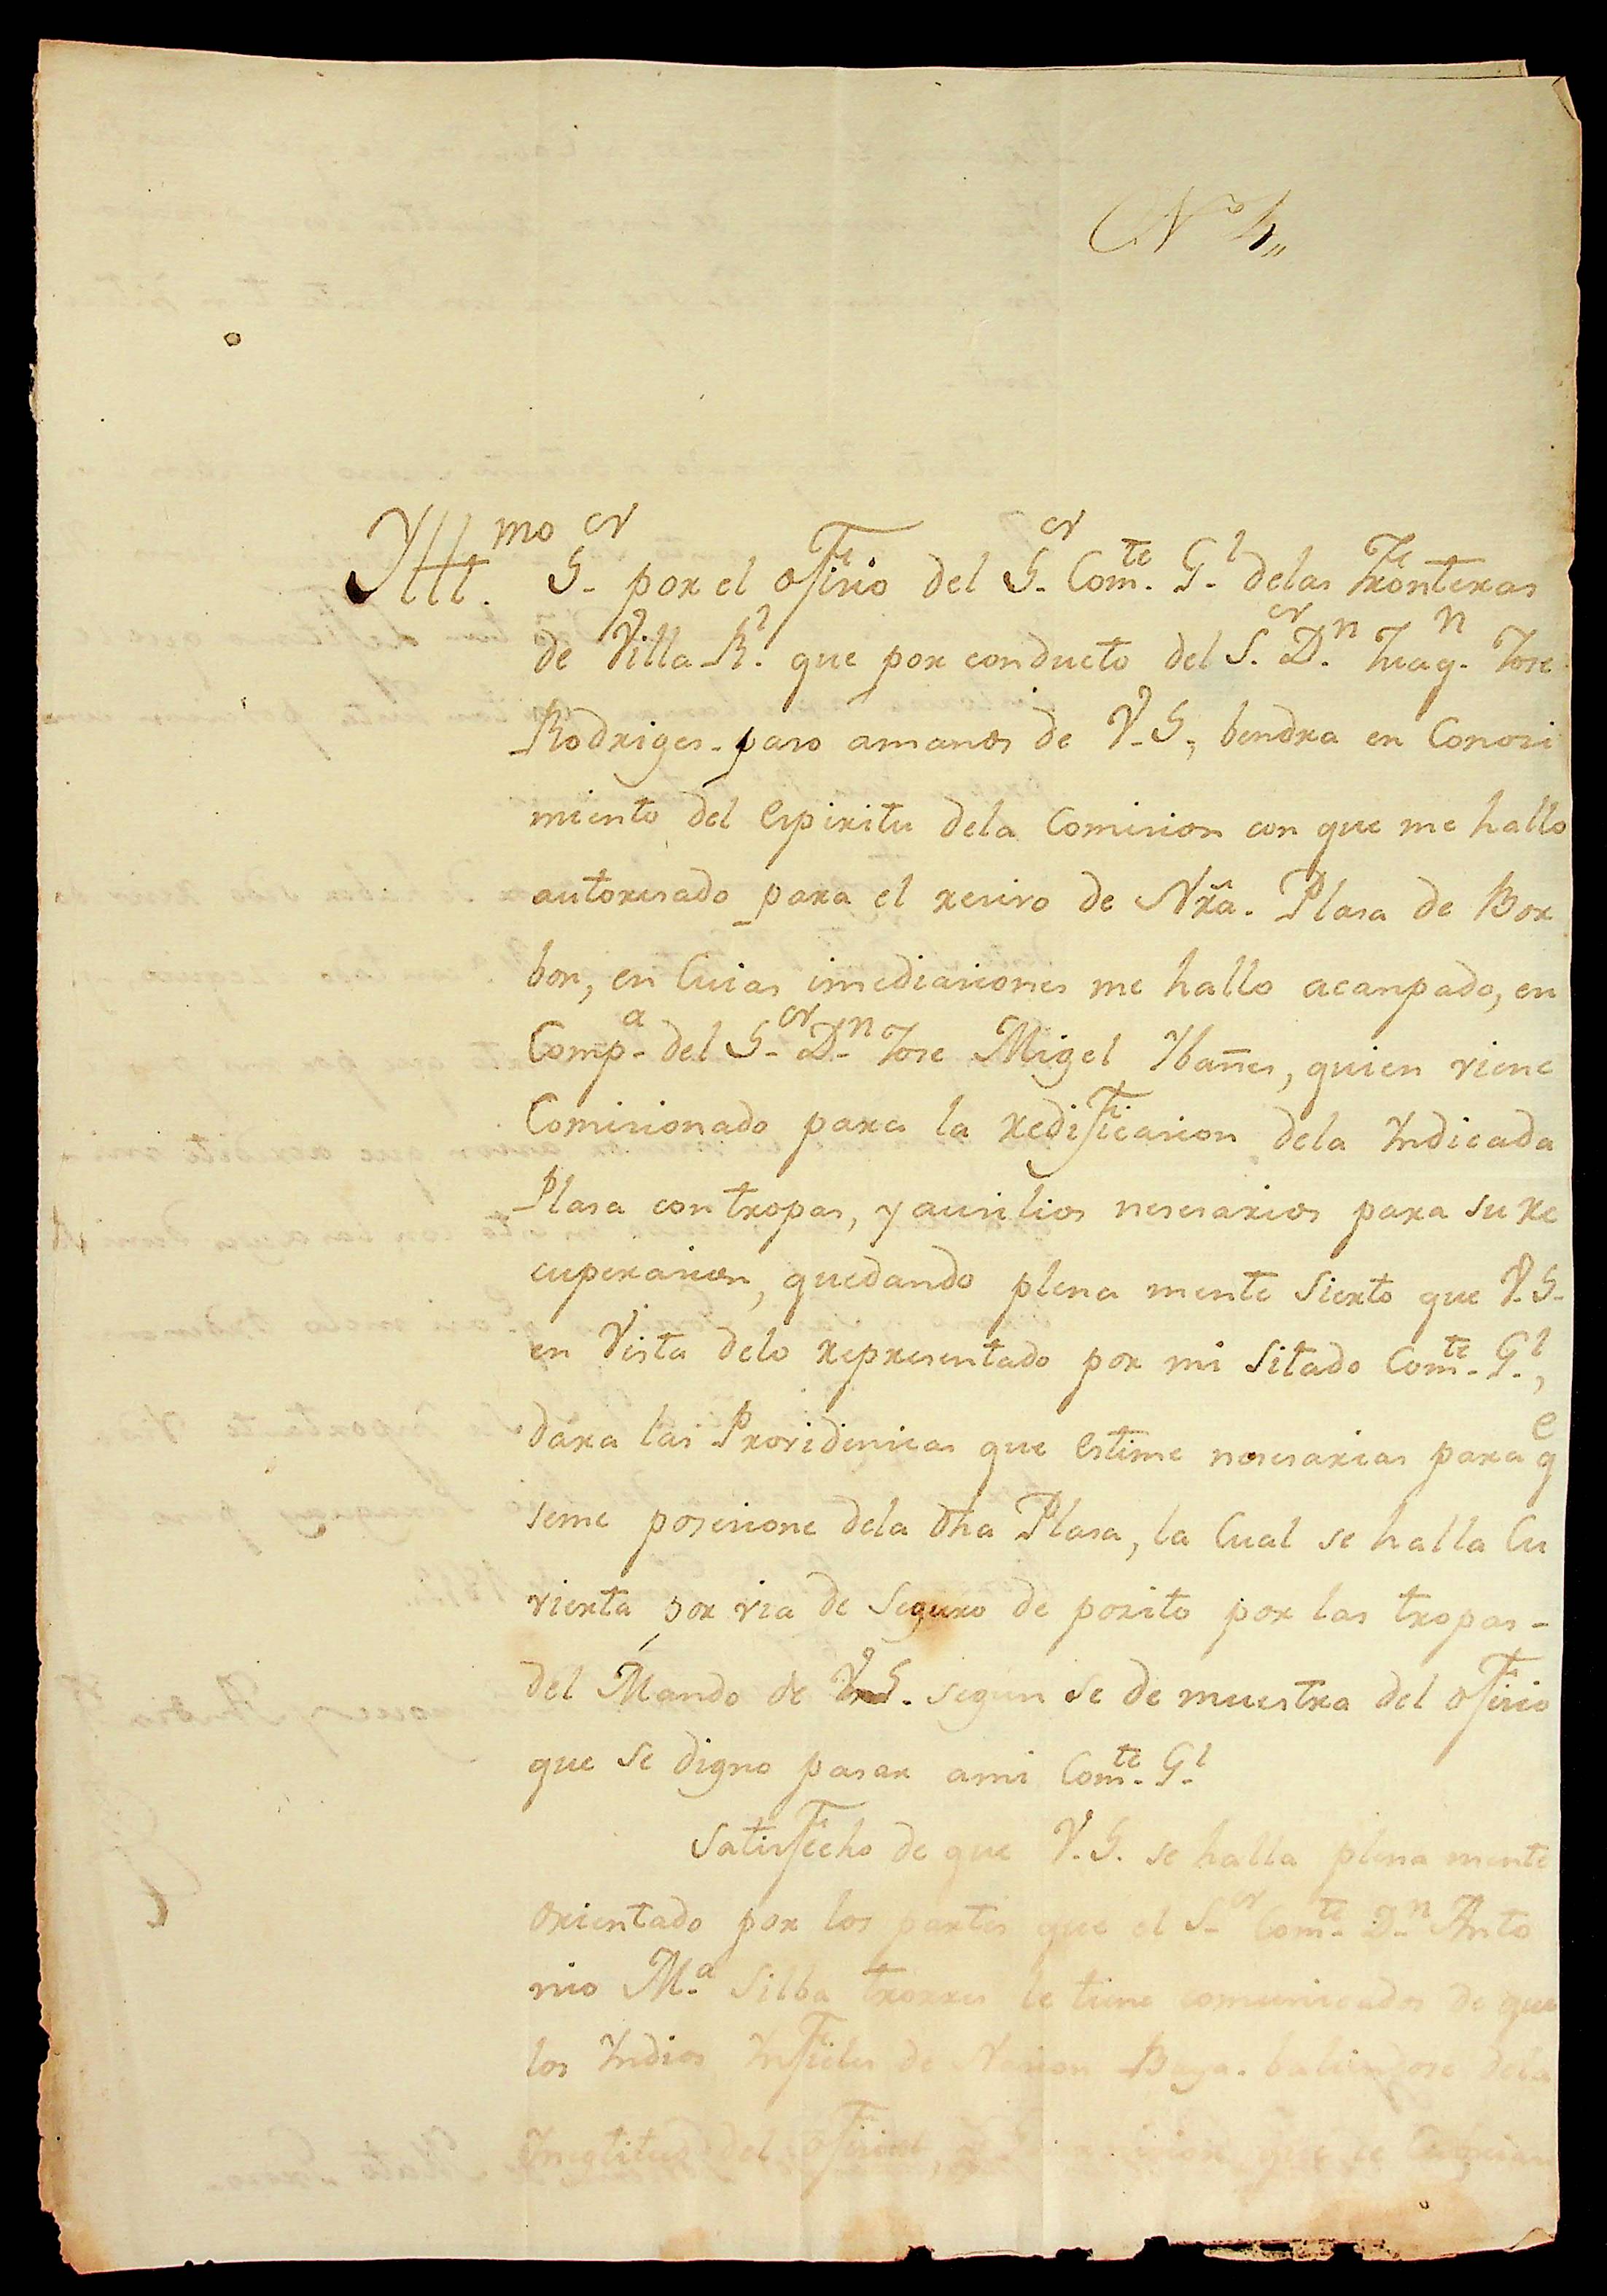 Nº 4,,
Yllt.mo S.or por el ofisio del S.or Com.te G.l delas fronteras
de Villa R.l que por conducto del S.or D.n Juaq.n Jose
Rodriges paso amanos de V.S., bendra en Conosi
miento del Espiritu dela Comision con que me hallo
autorisado para el resivo de Nrã. Plasa de Bor
bon, en Cuias imediasiones me hallo acanpado, en
Comp.a del S.or D.n Jose Migel Ybañes, quien viene
Comisionado para la redificasion dela Yndicada
Plasa con tropas, y ausilios nesesarios para su re
cuperasion, quedando plena mente Sierto que V.S.
en Vista delo representado por mi Sitado Com.te G.l,
dara las Providensias que Estime nesesarias para q.e
seme posesione dela dha Plasa, la Cual se halla Cu
vierta por via de Seguro de posito por las tropas -
del Mando de V.S. segun se de muestra del ofisio
que se digno pasar ami Com.te G.l
Satisfecho de que V.S. se halla plena mente
orientado por los partes que el S.or Com.te D.n Anto
nio M.a Silba trorres le tiene comunicados de que
los Yndios Ynfieles de Nasion Baya. baliendose dela
Yneptitud del ofisial, que le